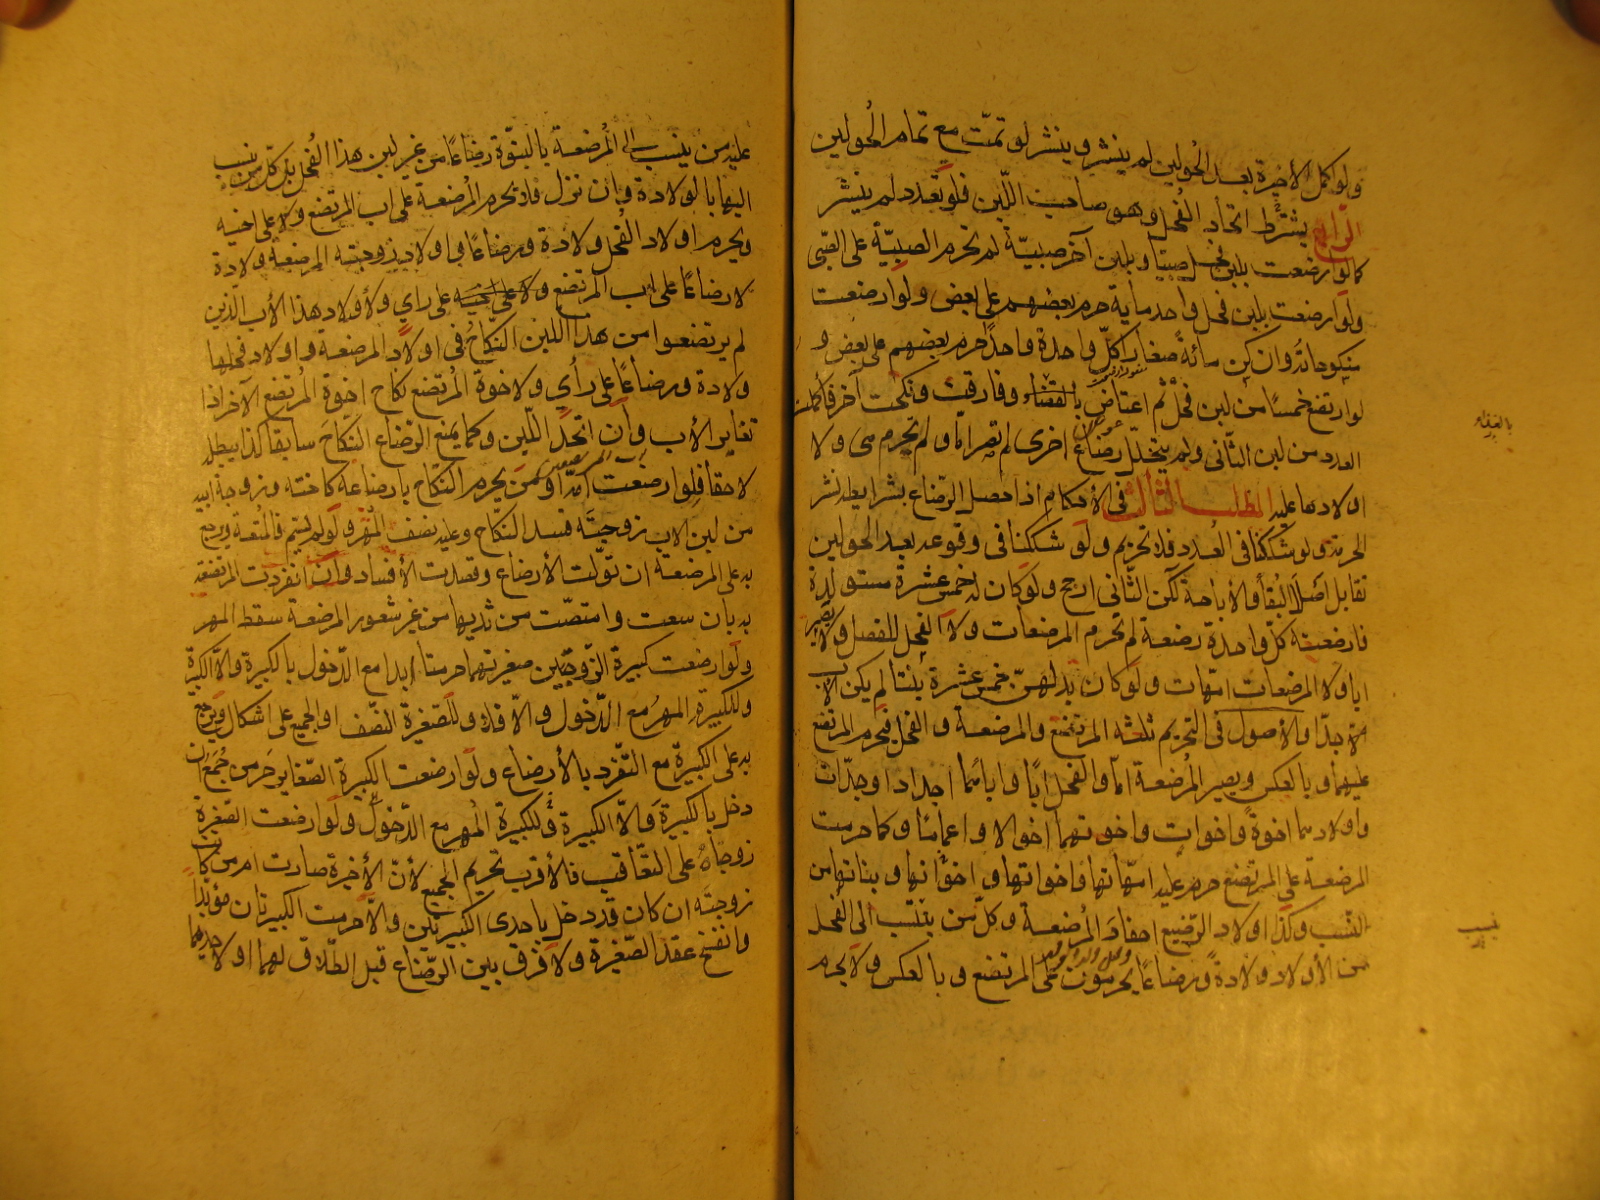 ولو كمل الأخيرة بعد الحولين لم ينشر وينشر لو تمّت مع تمام الحولين
الرابع يشترط اتحاد الفحل وهو صاحب اللّبن فلو تعدد لم ينشر
كما لو ارضعت بلبن فحل صبيّا وبلبن آخر صبيّة لم تحرم الصبيّة على الصّبي
ولو ارضعت بلبن فحل واحد مأية حرم بعضهم على بعض ولو ارضعت
منكوحاته وان كن مائة صغارا كلّ واحدة واحدًا حرم بعضهم على بعض و
لو ارتضع خمسًا من لبن فحل ثم اعتاض بالغذاء وفارقت ونكحت آخر فاكملت
العدد من لبن الثّاني ولم يتخلّل رضاع اخرى لم تصر امّا ولم تحرم هي ولا
اولادها عليه المطلب الثالث في الأحكام اذا حصل الرّضاع بشرايطه نشر
الحرمة ولو شككنا في العدد فلا تحريم ولو شككنا في وقوعه بعد الحولين
تقابل اصلا البقا والأباحة لكن الثّاني ارجح ولو كان له خمس عشرة مستولدة
فارضعته كلّ واحدة رضعة لم تحرم المرضعات ولا الفحل للفصل ولا يصير
ابا ولا المرضعات امّهات ولو كان بدلهنّ خمس عشرة بنتا لم يكن الأب
جدّا والأصول في التحريم ثلثه المرتضع والمرضعة والفحل فيحرم المرتضع
عليهما وبالعكس ويصير المرضعة امّا والفحل ابًا واباؤهما اجدادا وجدّات
واولادهما اخوةً واخوات واخوتهما اخوالا واعماما وكما حرمت
المرضعة على المرتضع حرم عليه امهّاتها واخواتها وبناتها من
النّسب وكذا اولاد الرّضيع احفاد المرضعة وكلّ من ينتسب الى الفحل
من الأولاد ولادةً ورضاعًا يحرمون على المرتضع وبالعكس ولا يحرم
بالغذاء
عليه من ينتسب الى المرضعة بالبنوّة رضاعًا من غير لبن هذا الفحل بل كلّ من ينسب
اليها بالولادة وان نزل فلا تحرم المرضعة على اب المرتضع ولا على اخيه
ويحرم اولاد الفحل ولادة ورضاعًا واولاد زوجته المرضعة ولادة
لا رضاعًا على اب المرتضع على راي ولأولاد هذا الأب الّذين
لم يرتضعوا من هذا اللبن النّكاح في اولاد المرضعة واولاد فحلها
ولادة ورضاعًا على رأي ولاخوة المرتضع نكاح اخوة المرتضع الآخر اذا
تغاير الأب وان اتحد اللّبن وكما يمنع الرّضاع النّكاح سابقا كذا يبطله
لاحقا فلو ارضعت امّه او من يحرم النّكاح بارضاعه كاخته وزوجة ابيه
من لبن الاب زوجته فسد النّكاح وعليه نصف المهر ولو لم يسم فالمتعة ويرجع
به على المرضعة ان تولّت الأرضاع وقصدت الأفساد وان انفردت المرتضعة
به بان سعت وامتصّت من ثديها من غير شعور المرضعة سقط المهر
ولو ارضعت كبيرة الزّوجتين صغيرتهما حرمتا ابدا مع الدّخول بالكبيرة والاّ الكبيرة
وللكبيرة المهر مع الدّخول والاّ فلا وللصّغيرة النّصف او الجميع على اشكال ويرجع
به على الكبيرة مع التّفرّد بالأرضاع ولو ارضعت الكبيرة الصّغاير حرمن جُمع ان
دخل بالكبيرة والاّ الكبيرة وللكبيرة المهر مع الدّخول ولو ارضعت الصّغيرة
زوجاه على التعّاقب فالأقرب تحريم الجميع لأنّ الأخيرة صارت ام من كانت
زوجته ان كان قد دخل باحدى الكبيرتين والاّ حرمت الكبيرتان مؤبّدًا
وانفسخ عقد الصّغيرة ولا فرق بين الرّضاع قبل الطّلاق لهما او لاحديهما